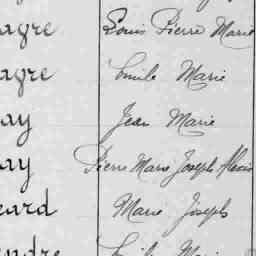 agre Louis Pierre Marie
agre Emile Marie
ay Jean Marie
ay Pierre Marie Joseph Alexis
eard Marie Joseph
endre Emile Marie